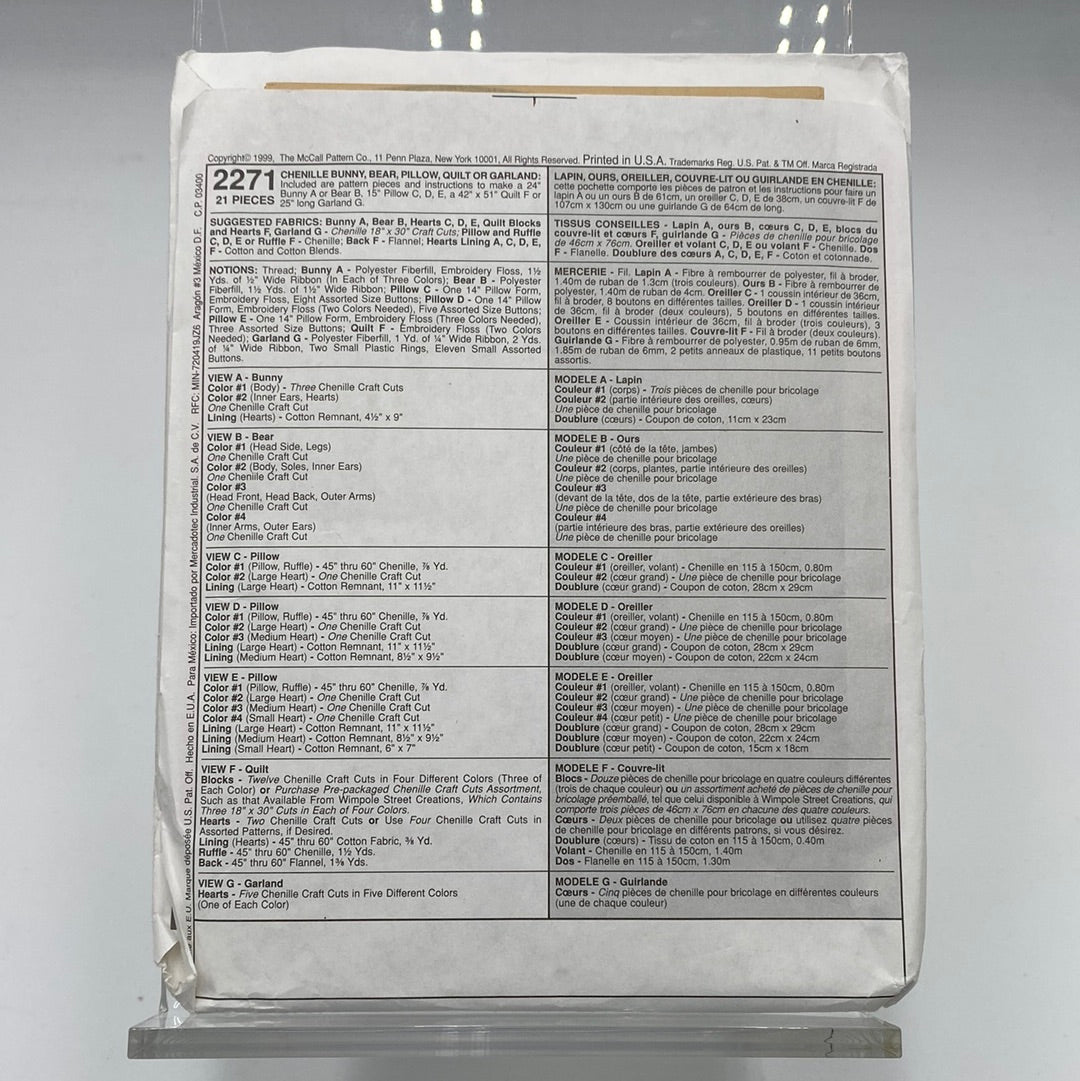 Copyright© 1999, The McCall Pattern Co., 11 Penn Plaza, New York 10001, All Rights Reserved. Printed in U.S.A. Trademarks Reg. U.S. Pat. & TM Off. Marca Registrada
2271
21 PIECES
CHENILLE BUNNY, BEAR, PILLOW, QUILT OR GARLAND:
Included are pattern pieces and instructions to make a 24"
Bunny A or Bear B, 15" Pillow C, D, E, a 42" x 51" Quilt F or
25" long Garland G.
SUGGESTED FABRICS: Bunny A, Bear B, Hearts C, D, E, Quilt Blocks
and Hearts F, Garland G - Chenille 18" x 30" Craft Cuts; Pillow and Ruffle
C, D, E or Ruffle F - Chenille; Back F - Flannel; Hearts Lining A, C, D, E,
F - Cotton and Cotton Blends.
NOTIONS: Thread; Bunny A - Polyester Fiberfill, Embroidery Floss, 1½
Yds. of ½" Wide Ribbon (In Each of Three Colors); Bear B - Polyester
Fiberfill, 1½ Yds. of 1½" Wide Ribbon; Pillow C - One 14" Pillow Form,
Embroidery Floss, Eight Assorted Size Buttons; Pillow D - One 14" Pillow
Form, Embroidery Floss (Two Colors Needed), Five Assorted Size Buttons;
Pillow E - One 14" Pillow Form, Embroidery Floss (Three Colors Needed),
Three Assorted Size Buttons; Quilt F - Embroidery Floss (Two Colors
Needed); Garland G - Polyester Fiberfill, 1 Yd. of ¼" Wide Ribbon, 2 Yds.
of ¼" Wide Ribbon, Two Small Plastic Rings, Eleven Small Assorted
Buttons.
VIEW A - Bunny
Color #1 (Body) - Three Chenille Craft Cuts
Color #2 (Inner Ears, Hearts)
One Chenille Craft Cut
Lining (Hearts) - Cotton Remnant, 4½" x 9"
VIEW B - Bear
Color #1 (Head Side, Legs)
One Chenille Craft Cut
Color #2 (Body, Soles, Inner Ears)
One Chenille Craft Cut
Color #3
(Head Front, Head Back, Outer Arms)
One Chenille Craft Cut
Color #4
(Inner Arms, Outer Ears)
One Chenille Craft Cut
VIEW C - Pillow
Color #1 (Pillow, Ruffle) - 45" thru 60" Chenille, ⅞ Yd.
Color #2 (Large Heart) - One Chenille Craft Cut
Lining (Large Heart) - Cotton Remnant, 11" x 11½"
VIEW D - Pillow
Color #1 (Pillow, Ruffle) - 45" thru 60" Chenille, ⅞ Yd.
Color #2 (Large Heart) - One Chenille Craft Cut
Color #3 (Medium Heart) - One Chenille Craft Cut
Lining (Large Heart) - Cotton Remnant, 11" x 11½"
Lining (Medium Heart) - Cotton Remnant, 8½" x 9½"
VIEW E - Pillow
Color #1 (Pillow, Ruffle) - 45" thru 60" Chenille, ⅞ Yd.
Color #2 (Large Heart) - One Chenille Craft Cut
Color #3 (Medium Heart) - One Chenille Craft Cut
Color #4 (Small Heart) - One Chenille Craft Cut
Lining (Large Heart) - Cotton Remnant, 11" x 11½"
Lining (Medium Heart) - Cotton Remnant, 8½" x 9½"
Lining (Small Heart) - Cotton Remnant, 6" x 7"
VIEW F - Quilt
Blocks - Twelve Chenille Craft Cuts in Four Different Colors (Three of
Each Color) or Purchase Pre-packaged Chenille Craft Cuts Assortment,
Such as that Available From Wimpole Street Creations, Which Contains
Three 18" x 30" Cuts in Each of Four Colors.
Hearts - Two Chenille Craft Cuts or Use Four Chenille Craft Cuts in
Assorted Patterns, if Desired.
Lining (Hearts) - 45" thru 60" Cotton Fabric, ⅜ Yd.
Ruffle - 45" thru 60" Chenille, 1½ Yds.
Back - 45" thru 60" Flannel, 1⅜ Yds.
VIEW G - Garland
Hearts - Five Chenille Craft Cuts in Five Different Colors
(One of Each Color)
LAPIN, OURS, OREILLER, COUVRE-LIT OU GUIRLANDE EN CHENILLE:
cette pochette comporte les pièces de patron et les instructions pour faire un
lapin A ou un ours B de 61cm, un oreiller C, D, E de 38cm, un couvre-lit F de
107cm x 130cm ou une guirlande G de 64cm de long.
TISSUS CONSEILLES - Lapin A, ours B, cœurs C, D, E, blocs du
couvre-lit et cœurs F, guirlande G - Pièces de chenille pour bricolage
de 46cm x 76cm. Oreiller et volant C, D, E ou volant F - Chenille. Dos
F - Flanelle. Doublure des cœurs A, C, D, E, F - Coton et cotonnade.
MERCERIE - Fil. Lapin A - Fibre à rembourrer de polyester, fil à broder,
1.40m de ruban de 1.3cm (trois couleurs). Ours B - Fibre à rembourrer de
polyester, 1.40m de ruban de 4cm. Oreiller C - 1 coussin intérieur de 36cm,
fil à broder, 8 boutons en différentes tailles. Oreiller D - 1 coussin intérieur
de 36cm, fil à broder (deux couleurs), 5 boutons en différentes tailles.
Oreiller E - Coussin intérieur de 36cm, fil à broder (trois couleurs), 3
boutons en différentes tailles. Couvre-lit F - Fil à broder (deux couleurs).
Guirlande G - Fibre à rembourrer de polyester, 0.95m de ruban de 6mm,
1.85m de ruban de 6mm, 2 petits anneaux de plastique, 11 petits boutons
assortis.
MODELE A - Lapin
Couleur #1 (corps) - Trois pièces de chenille pour bricolage
Couleur #2 (partie intérieure des oreilles, cœurs)
Une pièce de chenille pour bricolage
Doublure (cœurs) - Coupon de coton, 11cm x 23cm
MODELE B - Ours
Couleur #1 (côté de la tête, jambes)
Une pièce de chenille pour bricolage
Couleur #2 (corps, plantes, partie intérieure des oreilles)
Une pièce de chenille pour bricolage
Couleur #3
(devant de la tête, dos de la tête, partie extérieure des bras)
Une pièce de chenille pour bricolage
Couleur #4
(partie intérieure des bras, partie extérieure des oreilles)
Une pièce de chenille pour bricolage
MODELE C - Oreiller
Couleur #1 (oreiller, volant) - Chenille en 115 à 150cm, 0.80m
Couleur #2 (cœur grand) - Une pièce de chenille pour bricolage
Doublure (cœur grand) - Coupon de coton, 28cm x 29cm
MODELE D - Oreiller
Couleur #1 (oreiller, volant) - Chenille en 115 à 150cm, 0.80m
Couleur #2 (cœur grand) - Une pièce de chenille pour bricolage
Couleur #3 (cœur moyen) - Une pièce de chenille pour bricolage
Doublure (cœur grand) - Coupon de coton, 28cm x 29cm
Doublure (cœur moyen) - Coupon de coton, 22cm x 24cm
MODELE E - Oreiller
Couleur #1 (oreiller, volant) - Chenille en 115 à 150cm, 0.80m
Couleur #2 (cœur grand) - Une pièce de chenille pour bricolage
Couleur #3 (cœur moyen) - Une pièce de chenille pour bricolage
Couleur #4 (cœur petit) - Une pièce de chenille pour bricolage
Doublure (cœur grand) - Coupon de coton, 28cm x 29cm
Doublure (cœur moyen) - Coupon de coton, 22cm x 24cm
Doublure (cœur petit) - Coupon de coton, 15cm x 18cm
MODELE F - Couvre-lit
Blocs - Douze pièces de chenille pour bricolage en quatre couleurs différentes
(trois de chaque couleur) ou un assortiment acheté de pièces de chenille pour
bricolage préemballé, tel que celui disponible à Wimpole Street Creations, qui
comporte trois pièces de 46cm x 76cm en chacune des quatre couleurs.
Cœurs - Deux pièces de chenille pour bricolage ou utilisez quatre pièces
de chenille pour bricolage en différents patrons, si vous désirez.
Doublure (cœurs) - Tissu de coton en 115 à 150cm, 0.40m
Volant - Chenille en 115 à 150cm, 1.40m
Dos - Flanelle en 115 à 150cm, 1.30m
MODELE G - Guirlande
Cœurs - Cinq pièces de chenille pour bricolage en différentes couleurs
(une de chaque couleur)
aux E.U. Marque déposée U.S. Pat. Off. Hecho en E.U.A. Para México: Importado por Mercadotec Industrial, S.A. de C.V. RFC: MIN-720419JZ6 Aragón #3 México D.F. C.P. 03400